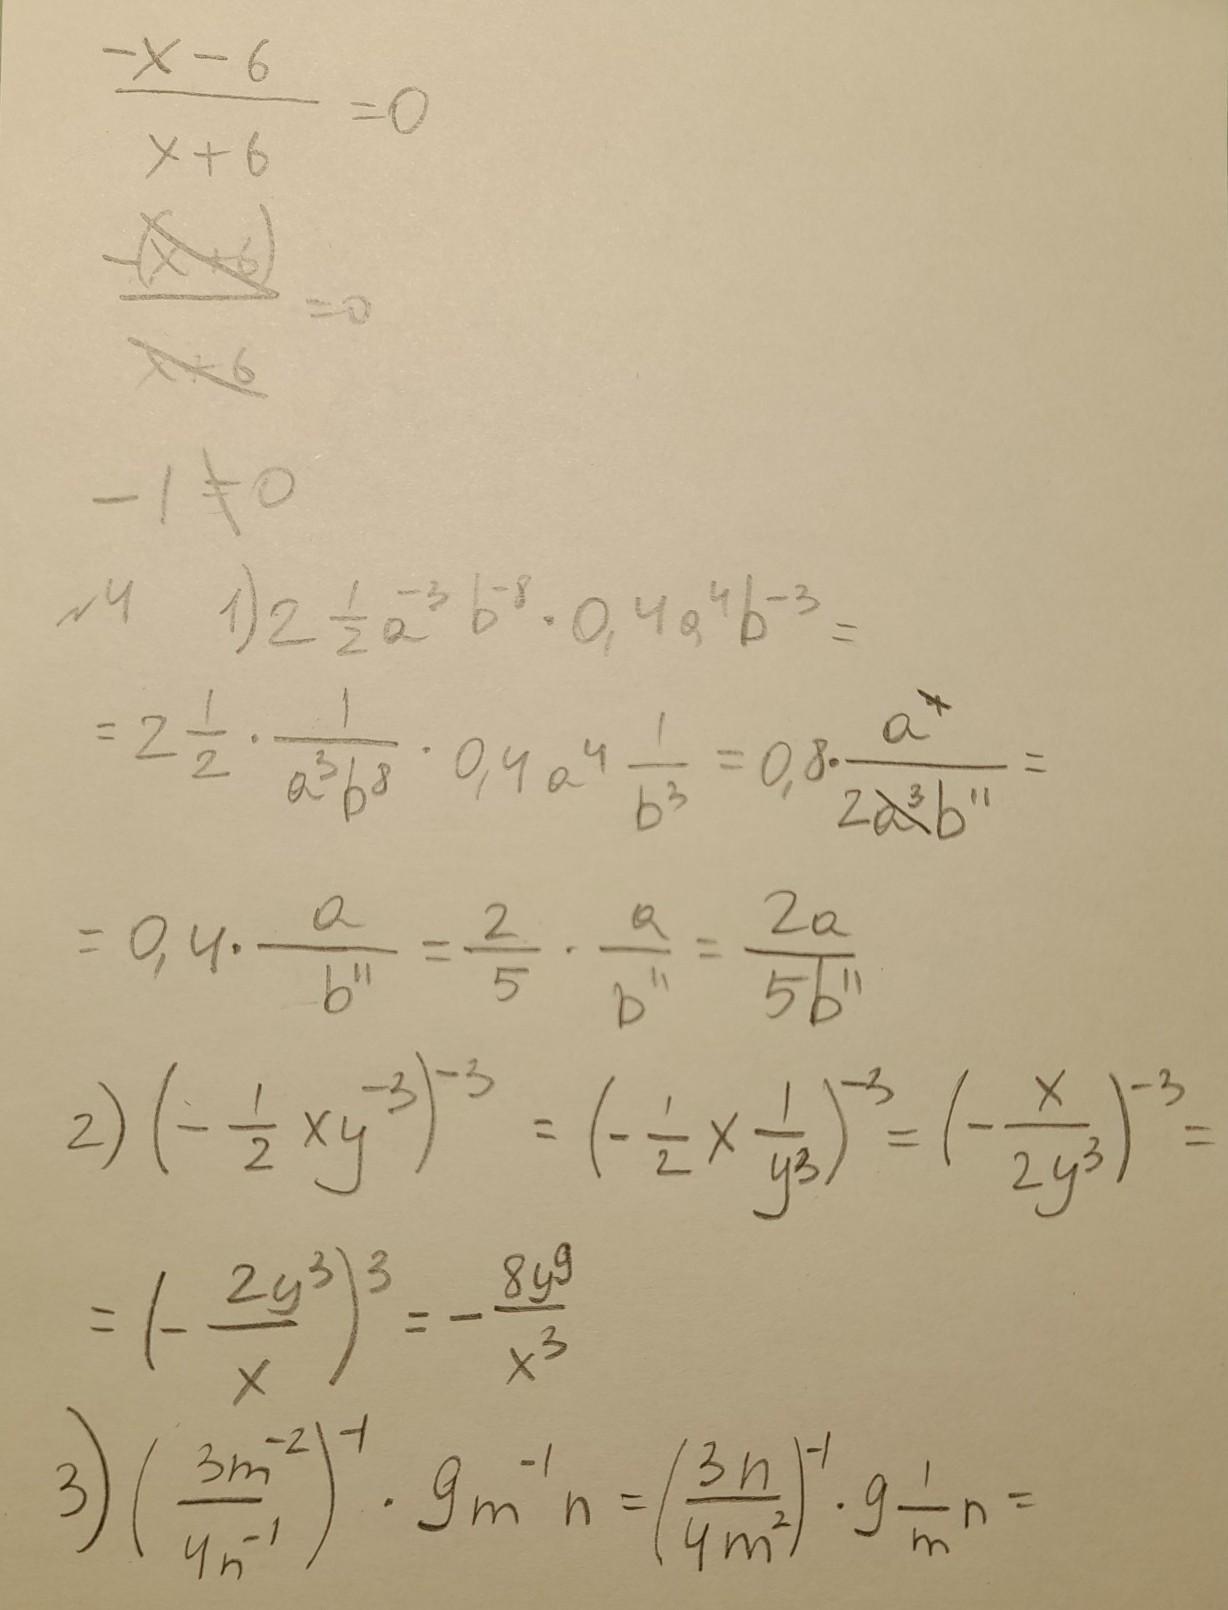 (-x - 6)/(x + 6) = 0
(-(x + 6))/(x + 6) = 0
-1 ≠ 0
№4 1) 2 1/2 a⁻³ b⁻⁸ · 0,4a⁴b⁻³ =
= 2 1/2 · 1/(a³b⁸) · 0,4a⁴ 1/b³ = 0,8 · a⁴/(2a³b¹¹) =
= 0,4 · a/b¹¹ = 2/5 · a/b¹¹ = 2a/(5b¹¹)
2) (-1/2 xy⁻³)⁻³ = (-1/2 x 1/y³)⁻³ = (-x/(2y³))⁻³ =
= (-2y³/x)³ = -8y⁹/x³
3) (3m⁻²/(4n⁻¹))⁻¹ · 9m⁻¹n = (3n/(4m²))⁻¹ · 9 1/m n =